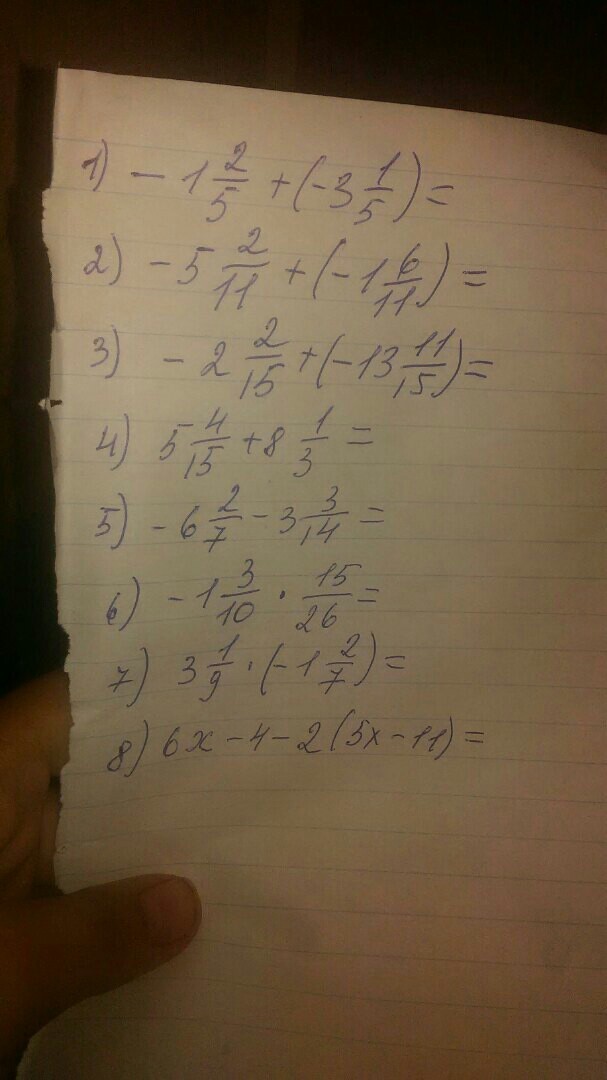 1) - 1 2/5 + (-3 1/5) =
2) - 5 2/11 + (-1 6/11) =
3) - 2 2/15 + (-13 11/15) =
4) 5 4/15 + 8 1/3 =
5) - 6 2/7 - 3 3/14 =
6) - 1 3/10 · 15/26 =
7) 3 1/9 · (-1 2/7) =
8) 6x - 4 - 2(5x - 11) =